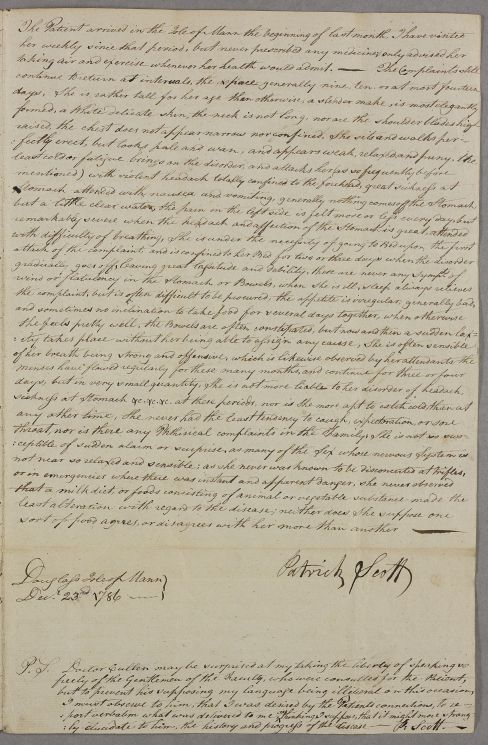 The Patient arrived in the Isle of Mann the beginning of last month. I have visited
her weekly since that period, but never prescribed any medicine, only advised her
taking air and exercise whenever her health would admit. — The Complaints still
continue to return at intervals, the space generally nine, ten, or at most fourteen
days, She is rather tall for her age than otherwise, a slender make, is most elegantly
formed, a White delicate skin, the neck is not long, nor are the shoulder blades high
raised, the chest does not appear narrow nor confined, She sits and walks per-
:fectly erect, but looks pale and wan, and appears weak, relaxed and pursy. the
least cold or fatigue brings on the disorder, and attacks her (as so frequently before
mentioned) with violent headach totally confined to the forehead, great sickness at
Stomach attended with nausea and vomiting, generally nothing comes off the Stomach
but a little clear water, the pain in the left side is felt more or less every day, but
remarkably severe when the headach and affection of the Stomach is great, attended
with difficulty of breathing, She is under the necessity of going to bed upon the first
attack of the complaint and is confined to her Bed for two or three days when the disorder
gradually goes off, leaving great lassitude and debility, there are never any Symptoms of
wind or flatulency in the Stomach or Bowels, when She is ill sleep always relieves
the complaint, but is often difficult to be procured. the appetite is irregular, generally bad,
and sometimes no inclination to take food for several days together, when otherwise
She feels pretty well, the Bowels are often constipated, but now and then a sudden lax-
:ity takes place without her being able to assign any cause, She is often sensible
of her breath being strong and offensive, which is likewise observed by her attendants. the
menses have flowed regularly for these many months, and continue for three or four
days, but in very small quantity, She is not more liable to her disorder of headach
sickness at Stomach &c. &c. &c. at these periods, nor is She more apt to catch cold than at
any other time, She never had the least tendency to cough, expectoration, or sore
throat, nor is there any Phthisical complaints in the Family, She is not so sus-
:ceptible of sudden alarm or surprise, as many of the Sex whose nervous System is
not near so relaxed and sensible; as she never was known to be disconcerted at trifles,
or in emergencies where there was instant and apparent danger. She never observed
that a milk diet, or foods consisting of animal or vegetable substances made the
least alteration with regard to the disease; neither does She suppose one
sort of food agrees, or disagrees with her more than another —
Patrick Scott
Douglass Isle of Mann
Decr. 23rd 1786 —
P.S. Doctor Cullen may be surprised at my taking the liberty of speaking so
freely of the Gentlemen of the Faculty, who were consulted for the Patient,
but to prevent his supposing my language being illiberal on this occasion,
I must observe to him, that I was desired by the Patients connections, to re-
:port verbatim what was delivered to me (thinking I suppose, that it might more strong-
:ly elucidate to him, the history and progress of the disease — P. Scott. —